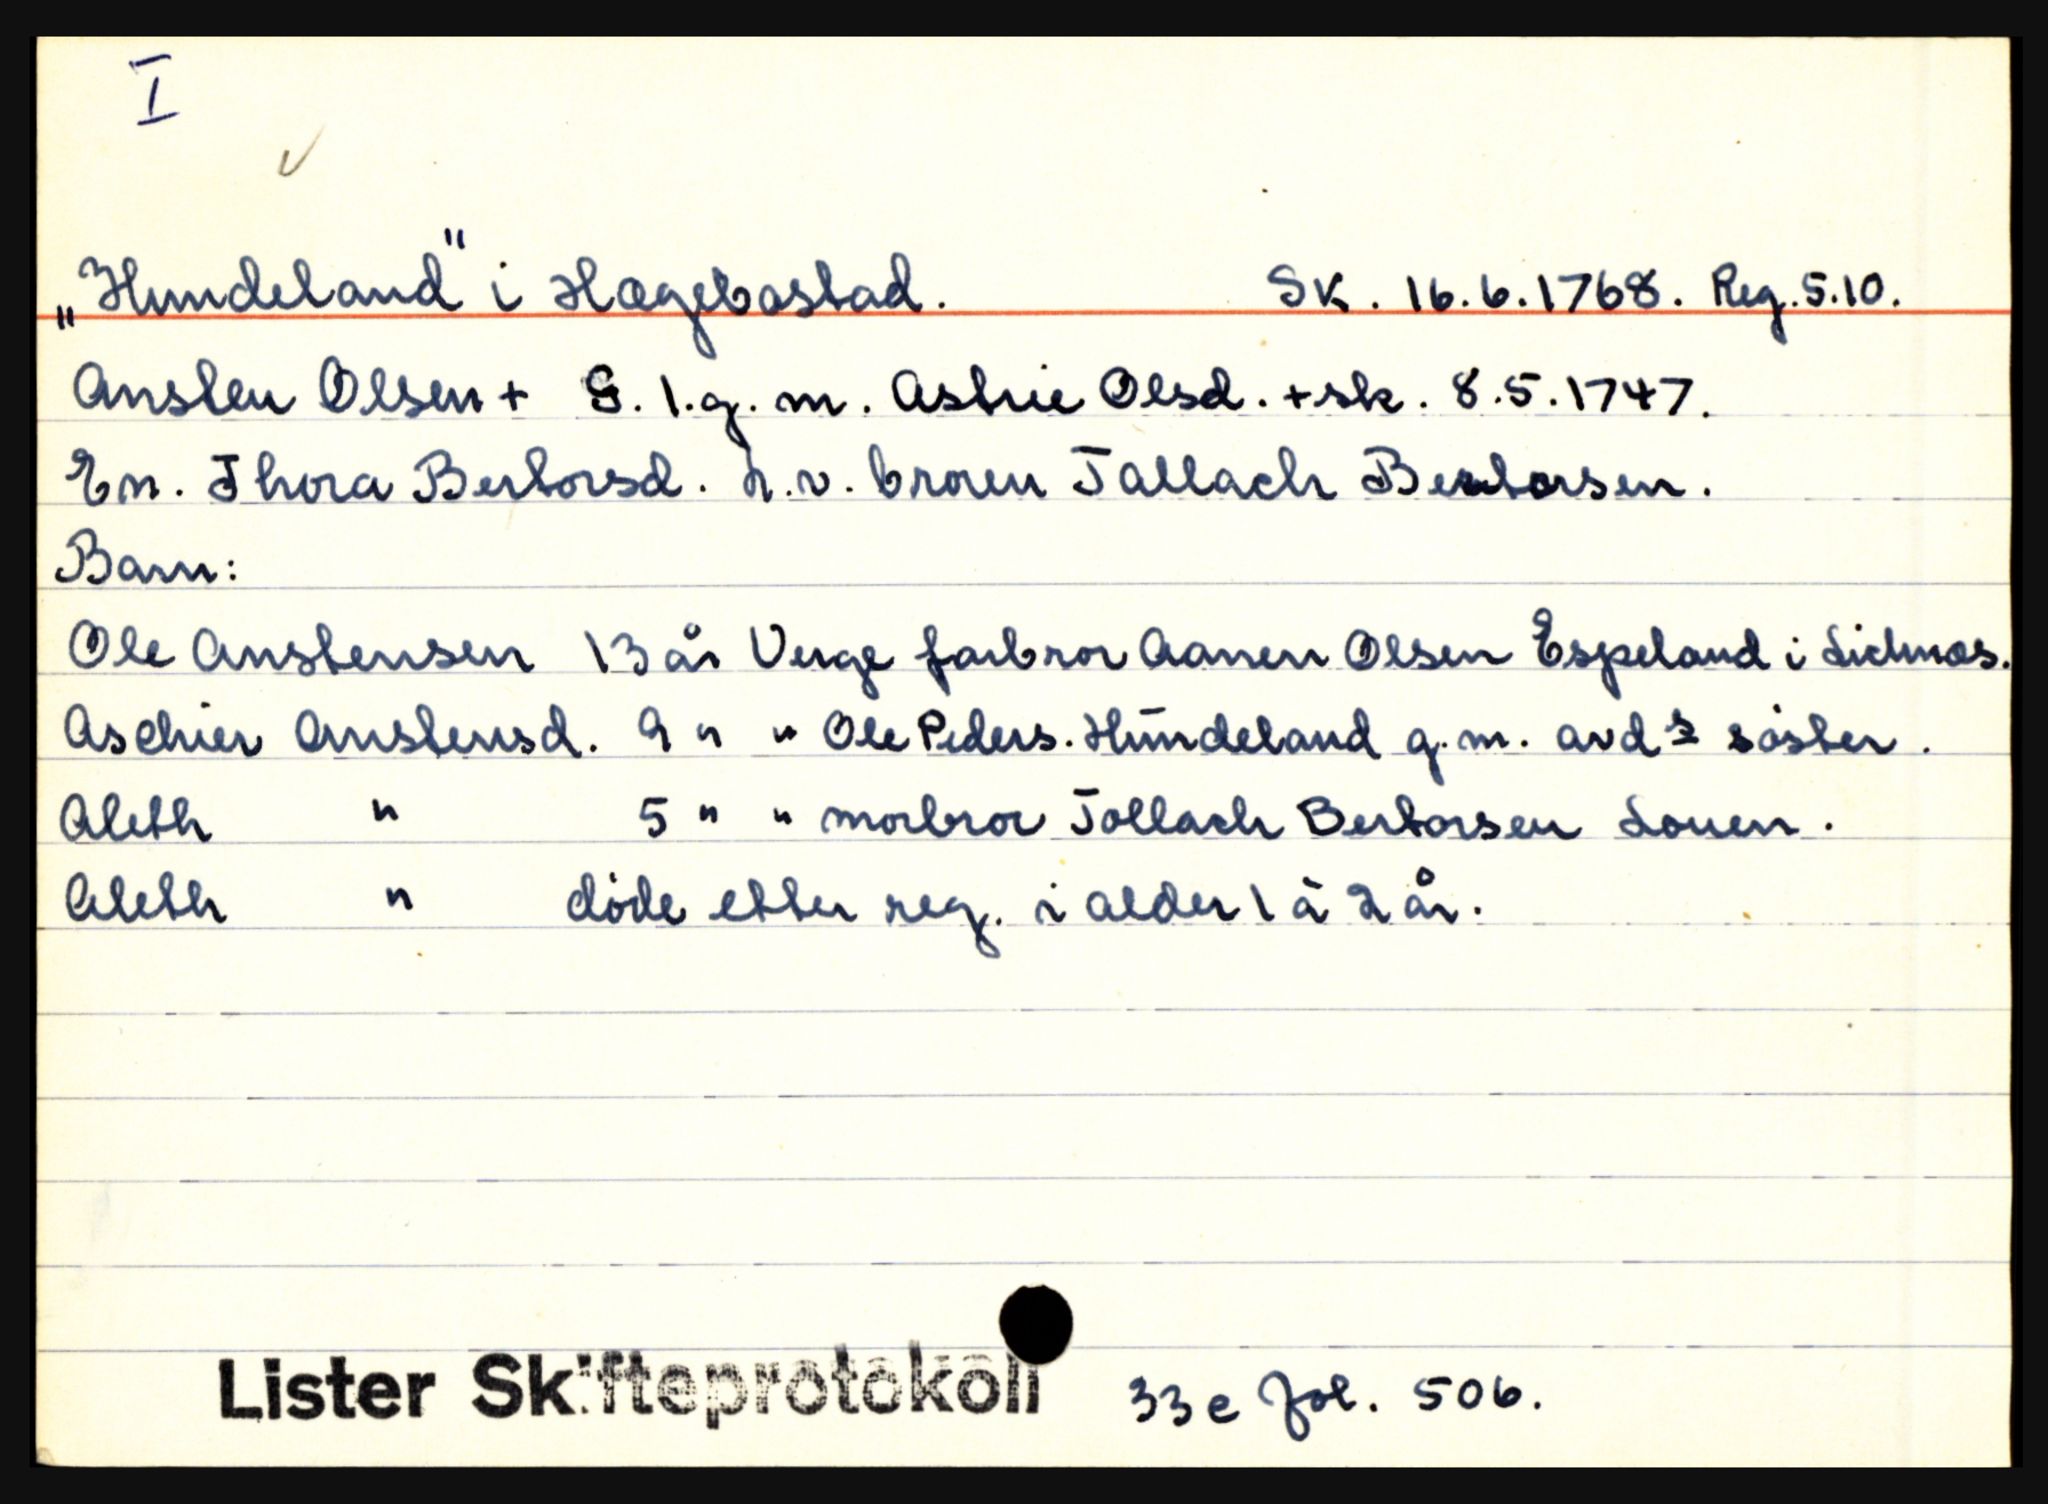 I
„Hundeland" i Hægebostad. Sk. 16.6.1768. Reg. 5.10.
Ansten Olsen + G. 1. g. m. Astrie Olsd. + sk. 8.5.1747.
En. Thora Bertorsd. L.v. broren Tallach Bertorsen.
Barn:
Ole Anstensen 13 år Verge farbror Aanen Olsen Espeland i Lidmas.
Aschier Anstensd. 9 " " Ole Peders. Hundeland g. m. avds søster.
Aleth " 5 " " morbror Tollach Bertorsen Louen.
Aleth " døde etter reg. i alder 1 à 2 år.
Lister Skifteprotokoll 33 e fol. 506.